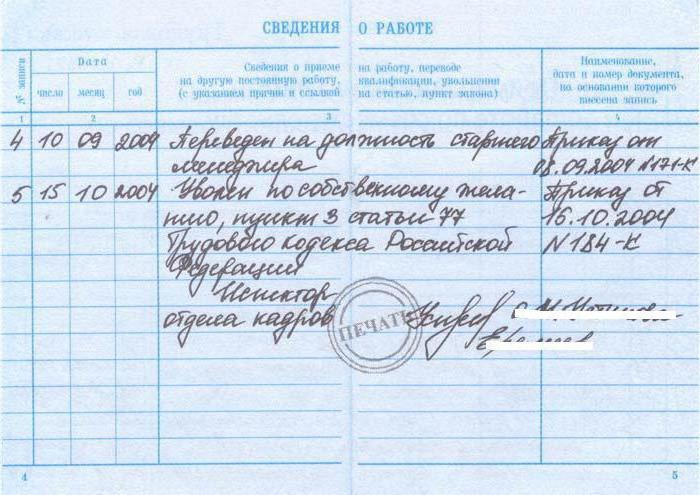 СВЕДЕНИЯ О РАБОТЕ
№ записи
Дата
число месяц год
Сведения о приеме на работу, переводе
на другую постоянную работу, квалификации, увольнении
(с указанием причин и ссылкой на статью, пункт закона)
Наименование,
дата и номер документа,
на основании которого
внесена запись
1 2 3 4
4 10 09 2004 Переведен на должность старшего Приказ от
менеджера 08.09.2004 №171-К
5 15 10 2004 Уволен по собственному жела- Приказ от
нию, пункт 3 статьи 77 15.10.2004
Трудового кодекса Российской N184-К
Федерации
Испектор
отдела кадров
ПЕЧАТЬ
4 5